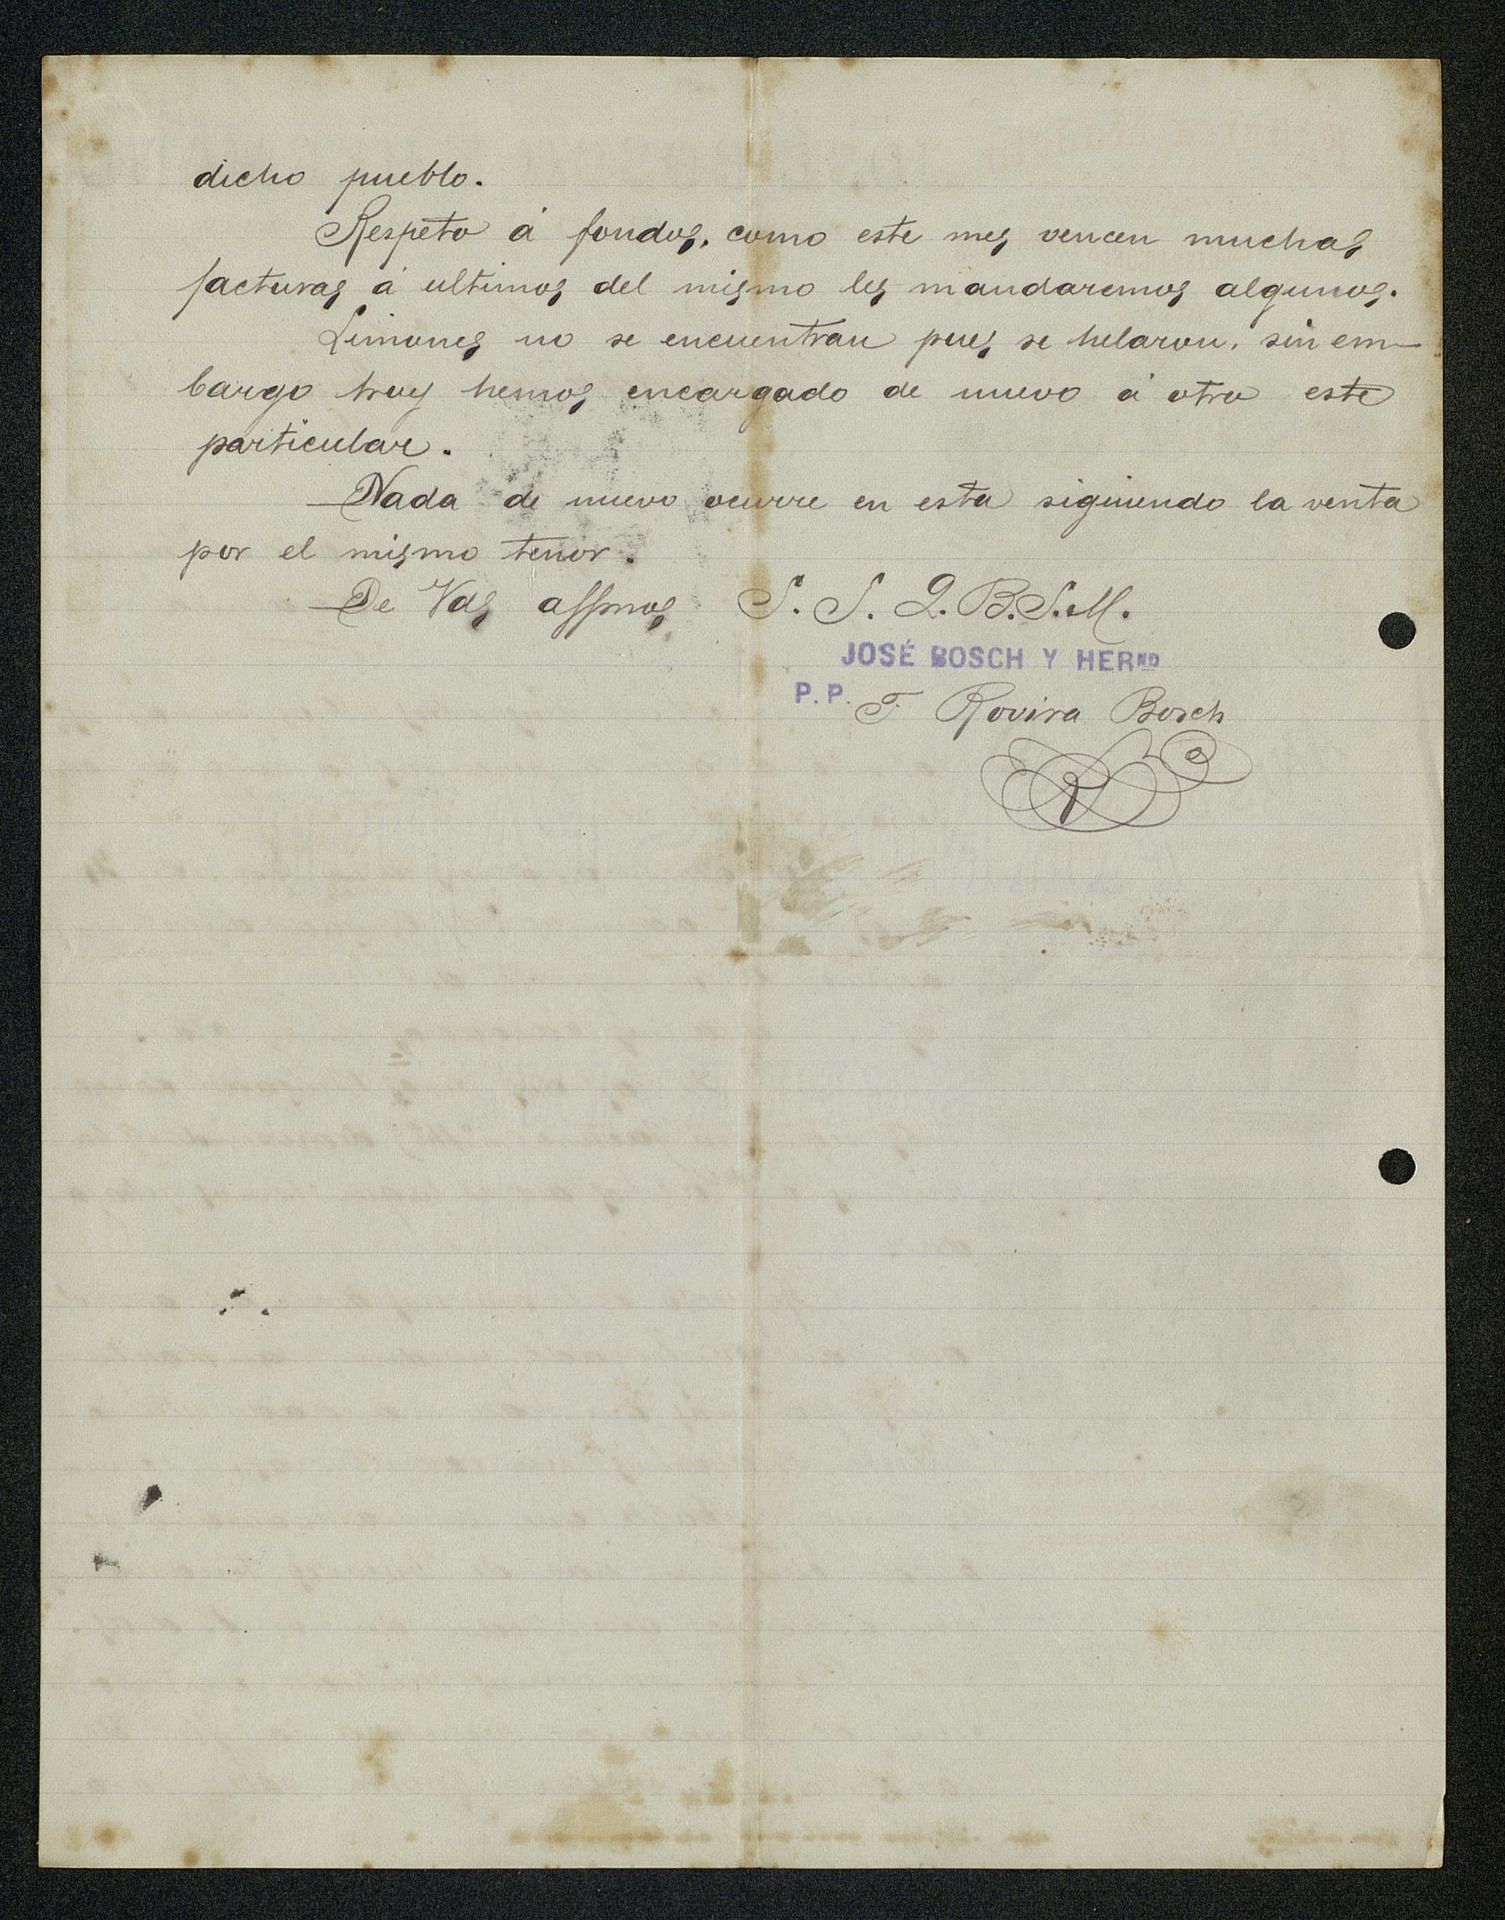 dicho pueblo.
Respeto á fondos, como este mes vencen muchas
facturas á ultimos del mismo les mandaremos algunos.
Limones no se encuentran pues se helaron, sin em-
bargo hoy hemos encargado de nuevo á otro este
particular.
Nada de nuevo ocurre en esta siguiendo la venta
por el mismo tenor.
De Vds affmos S. S. Q. B. S. M.
JOSÉ BOSCH Y HERNO
P. P. F. Rovira Bosch